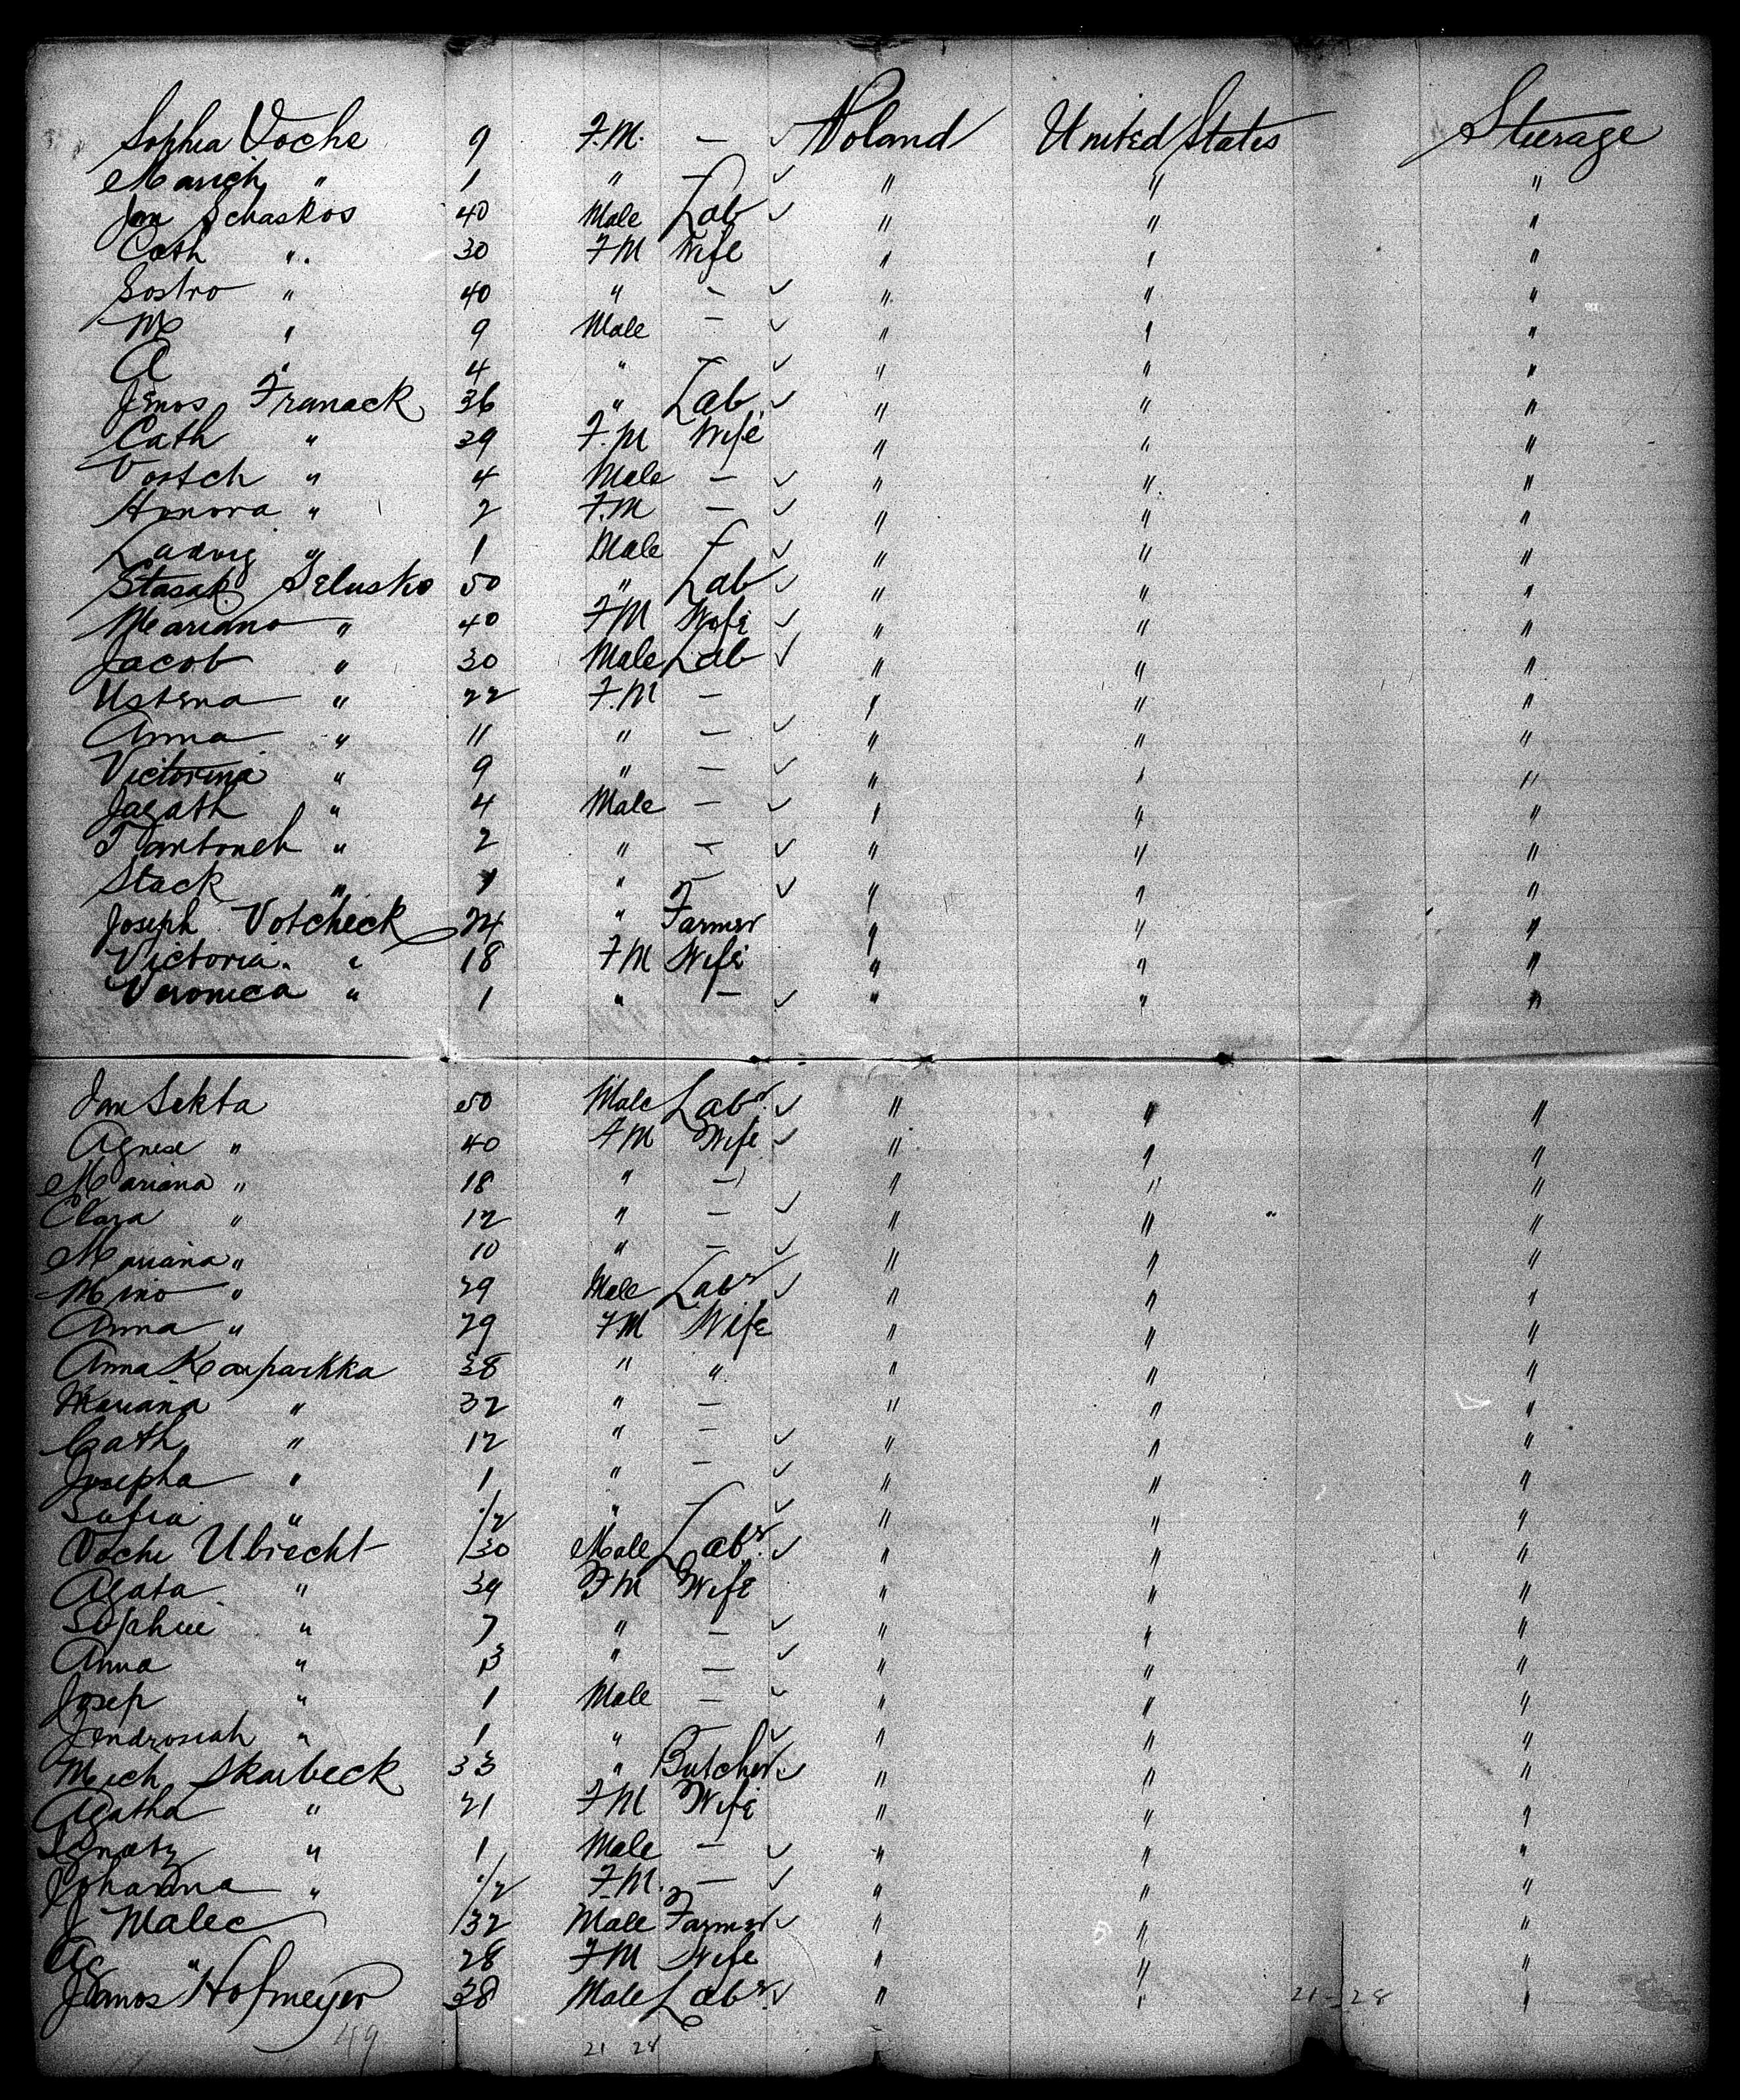 Sophia Voche 9 F.M. — ✓ Poland United States Steerage
Marich " 1 " — ✓ " " "
Jan Schaskos 40 Male Lab ✓ " " "
Cath " 30 FM Wife " " "
Sostro " 40 " — ✓ " " "
M " 9 Male — ✓ " " "
A " 4 " — ✓ " " "
Jenos Franack 36 " Lab ✓ " " "
Cath " 39 F.M Wife " " "
Vostch " 4 Male — ✓ " " "
Honora " 2 F.M — ✓ " " "
Ladvig " 1 Male — ✓ " " "
Stasak Selusko 50 " Lab ✓ " " "
Mariano " 40 FM Wife ✓ " " "
Jacob " 30 Male Lab ✓ " " "
Ustena " 22 F.M — " " "
Anna " 11 " — ✓ " " "
Victorina " 9 " — ✓ " " "
Jagath " 4 Male — ✓ " " "
Tantoneh " 2 " — ✓ " " "
Stack " 1 " — ✓ " " "
Joseph Votcheck 24 " Farmer " " "
Victoria " 18 FM Wife " " "
Veronica " 1 " — ✓ " " "
Jan Sekta 50 Male Labr. ✓ " " "
Agnese " 40 FM Wife ✓ " " "
Mariana " 18 " — " " "
Clara " 12 " — ✓ " " "
Mariana " 10 " — ✓ " " "
Mino " 29 Male Labr ✓ " " "
Anna " 29 FM Wife " " "
Anna Karparkka 38 " " " " "
Mariana " 32 " — " " "
Cath " 12 " — ✓ " " "
Josepha " 1 " — ✓ " " "
Sufia " 1/2 " — ✓ " " "
Voche Ubrecht 30 Male Labr. ✓ " " "
Agata " 39 FM Wife " " "
Sophie " 7 " — ✓ " " "
Anna " 3 " — ✓ " " "
Josep " 1 Male — ✓ " " "
Jendrosiah " 1 " ✓ " " "
Mich Skarbeck 33 " Butcher ✓ " " "
Agatha " 21 FM Wife " " "
Ignatz " 1 Male — ✓ " " "
Johanna " 1/2 F.M. — ✓ " " "
J Malec 32 Male Farmer ✓ " " "
Ag " 28 FM Wife " " "
Janos Hofmeyer 38 Male Labr. ✓ " " "
21-28
49 21 28